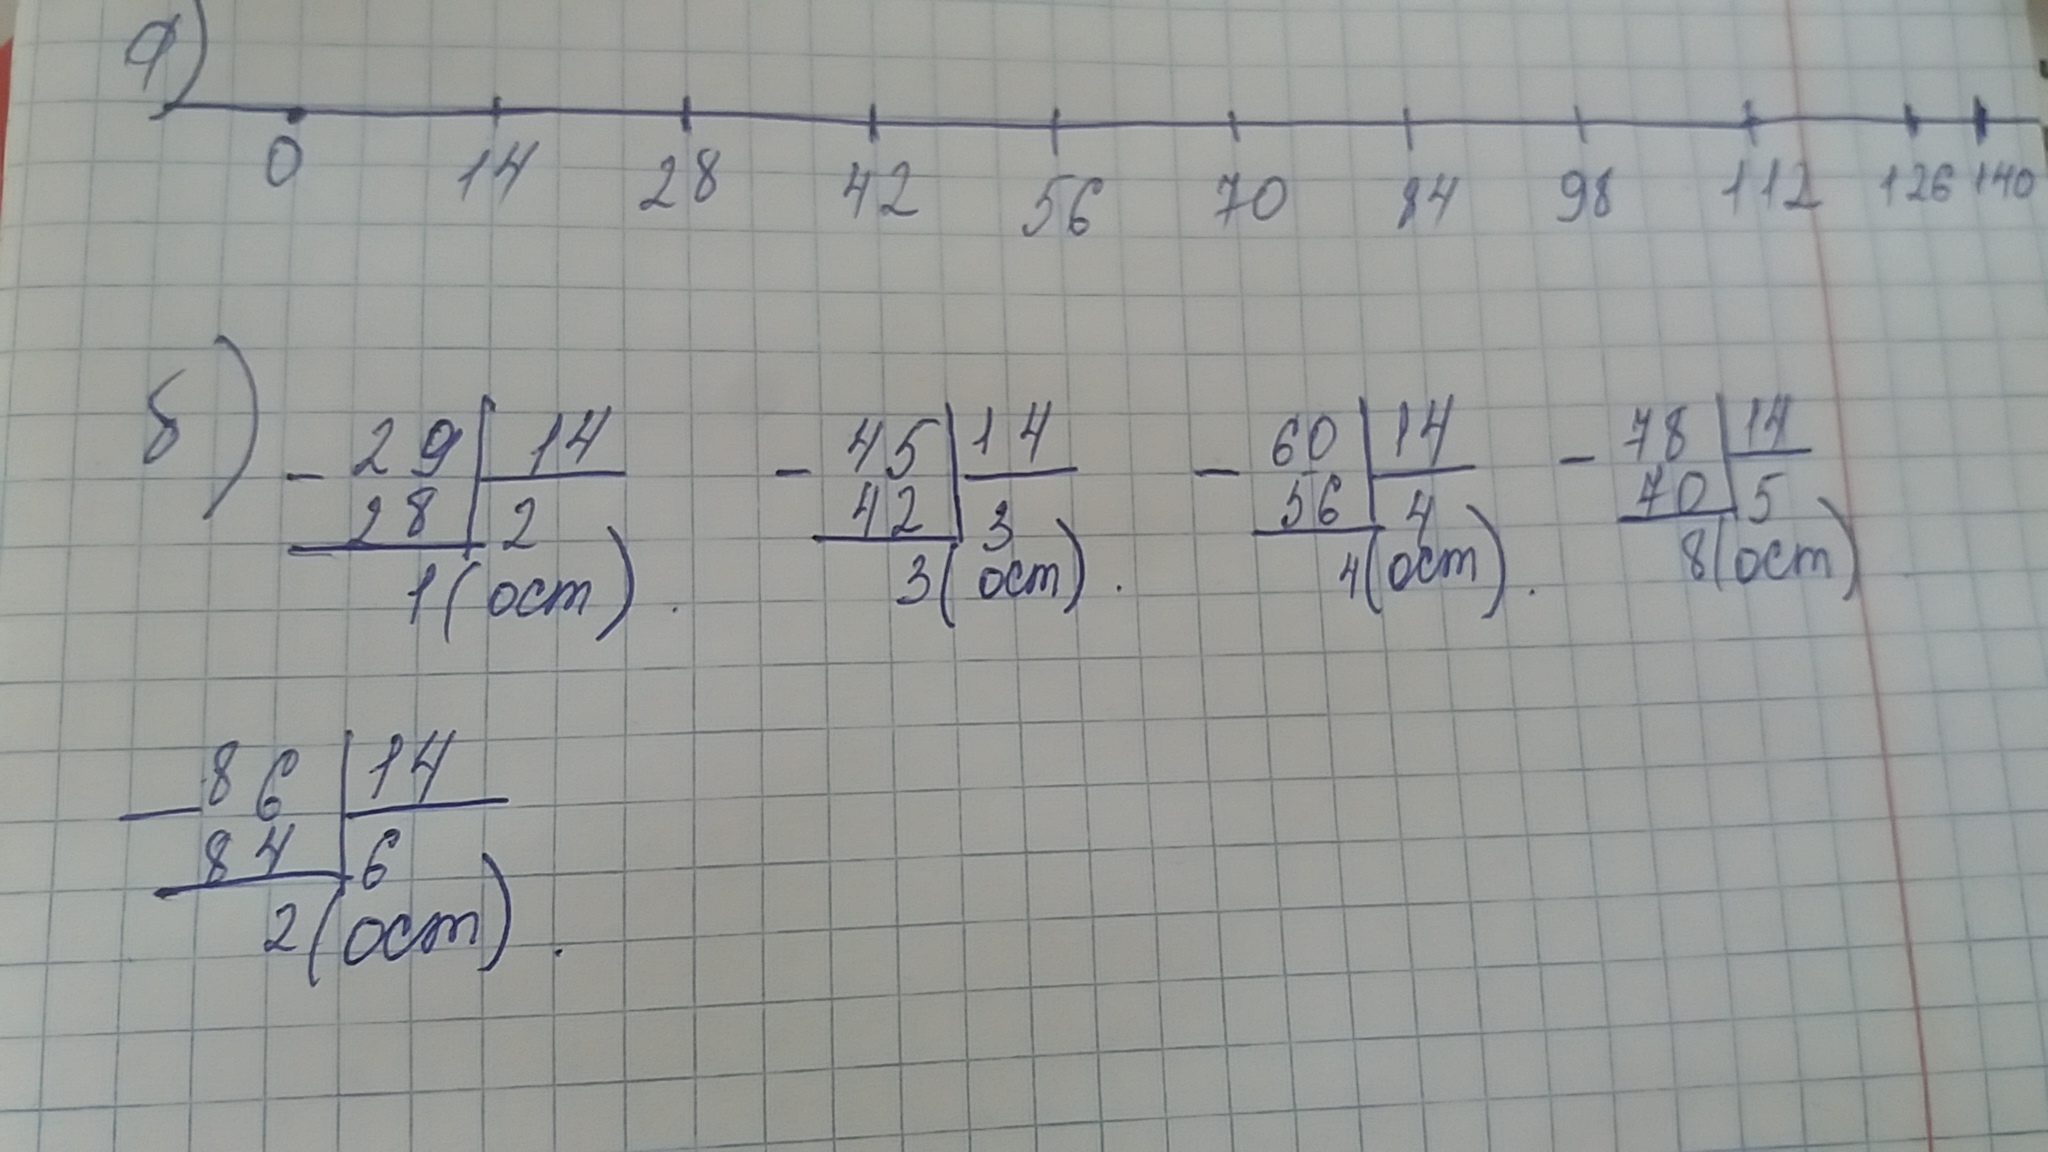 а)
0 14 28 42 56 70 84 98 112 126 140
б)
- 29 | 14 - 45 | 14 - 60 | 14 - 78 | 14
28 | 2 42 | 3 56 | 4 70 | 5
1 (ост). 3 (ост). 4 (ост). 8 (ост)
- 86 | 14
84 | 6
2 (ост).